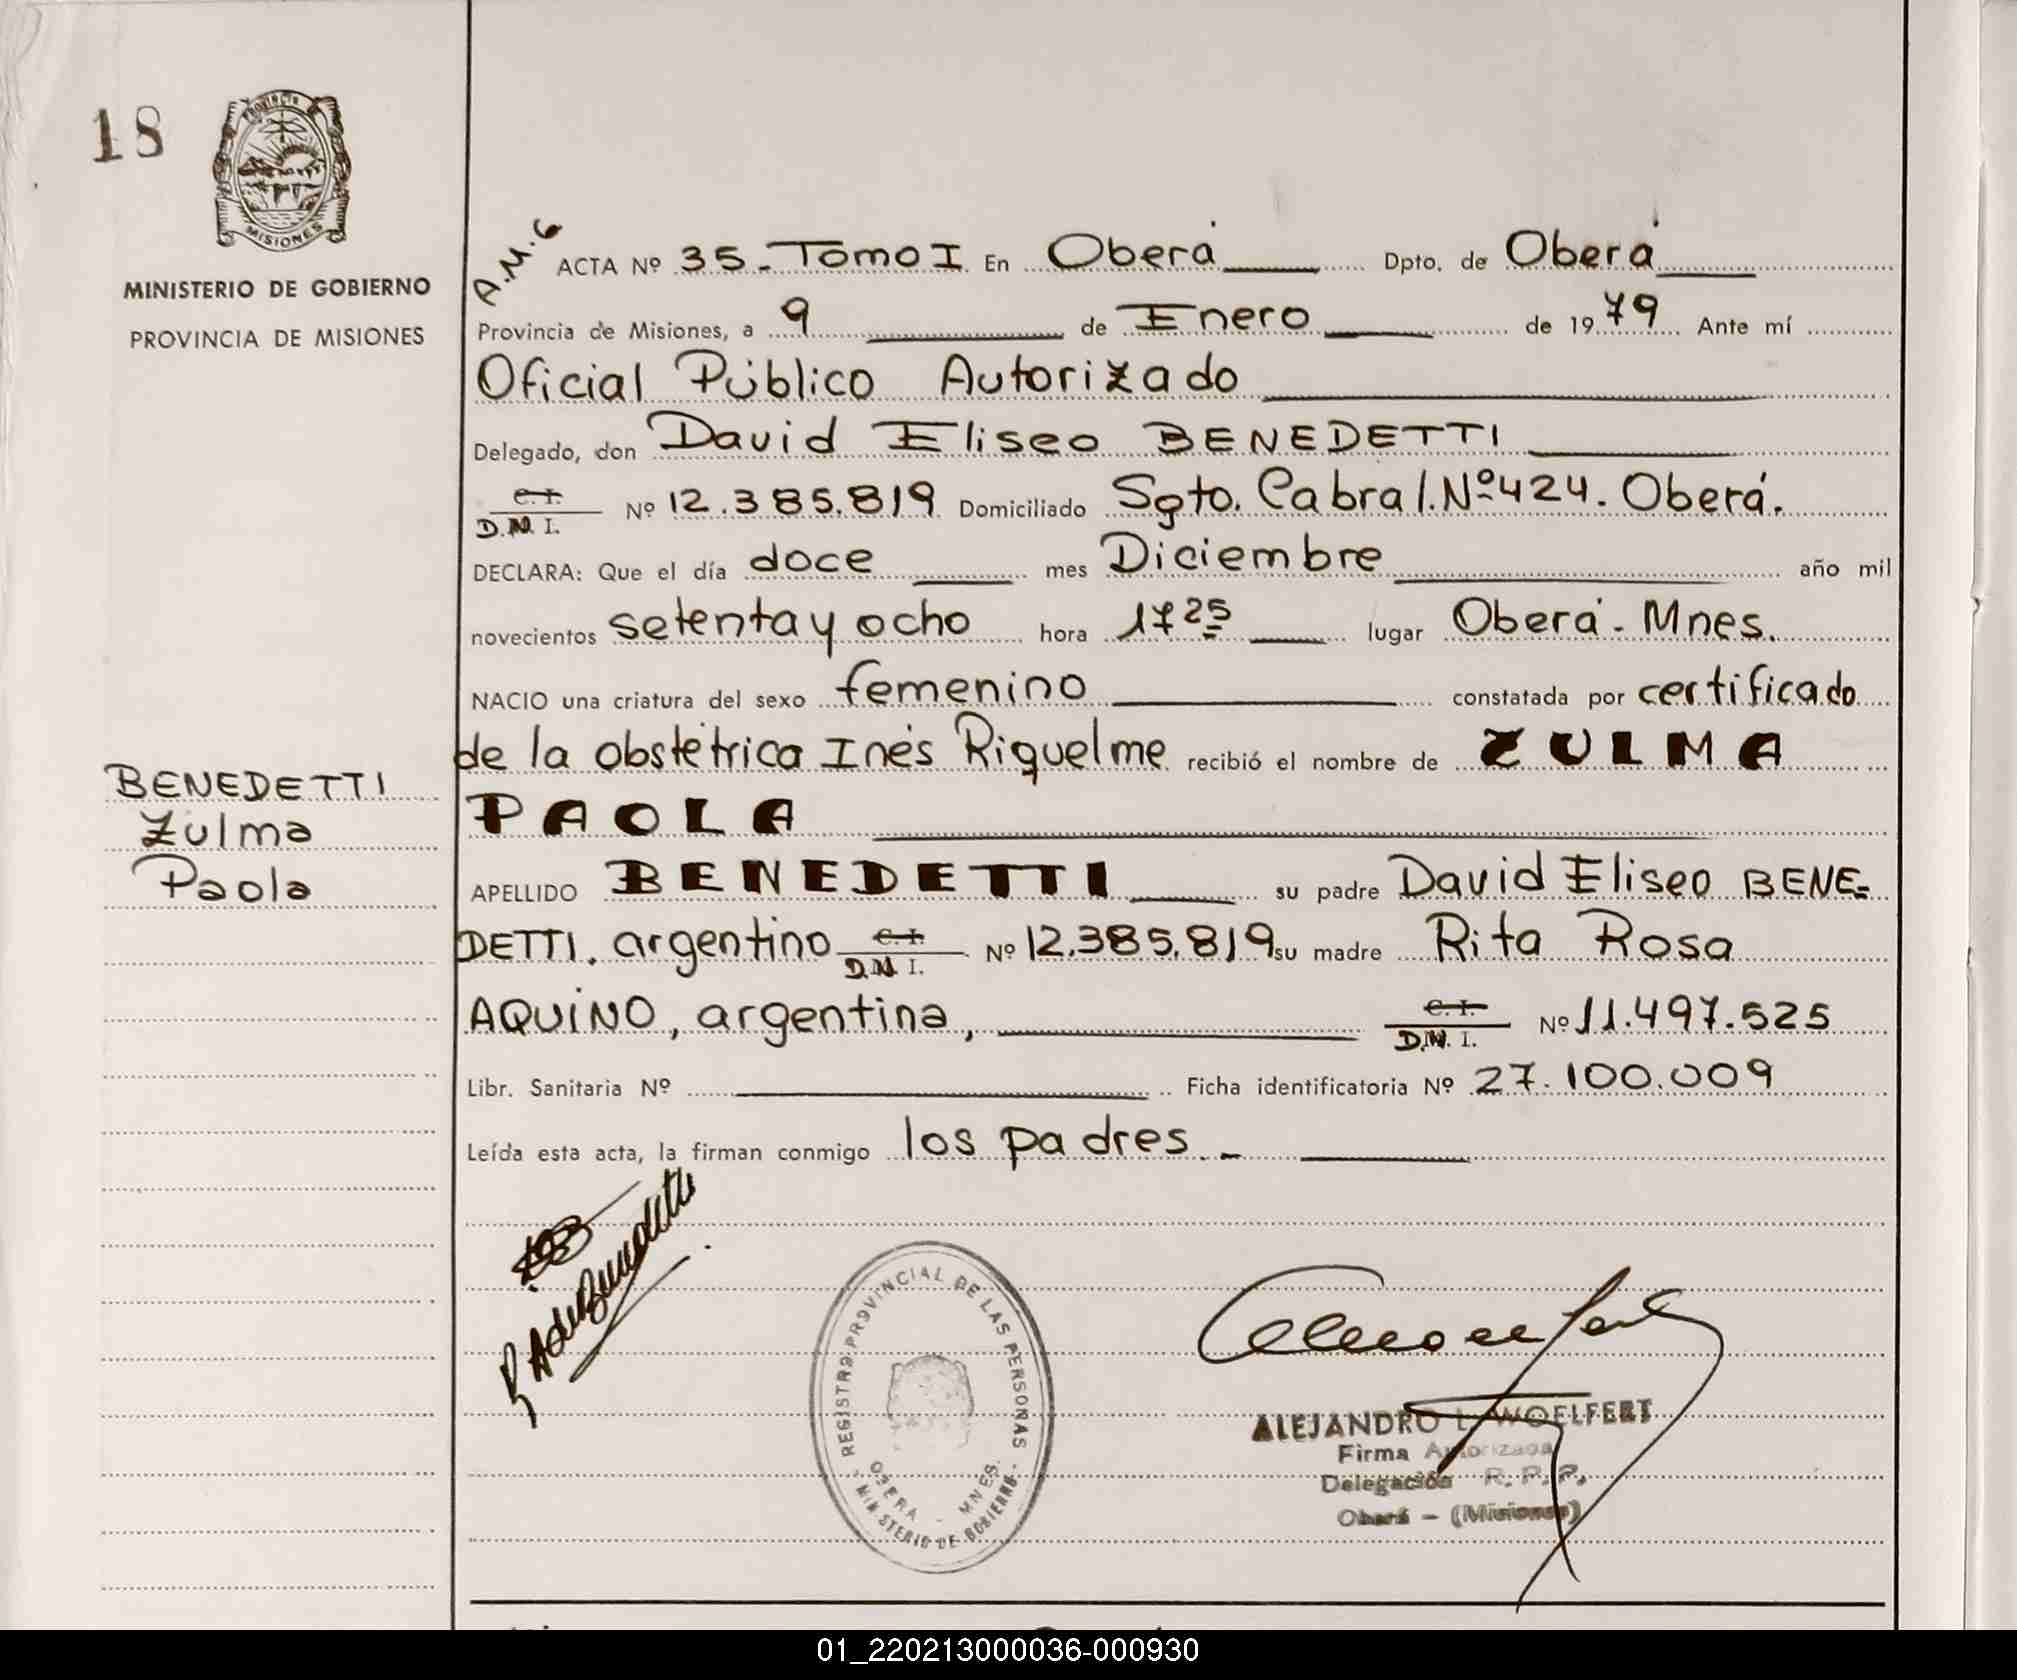 18
PROVINCIA
MISIONES
MINISTERIO DE GOBIERNO
PROVINCIA DE MISIONES
A.M.G
ACTA Nº 35 - Tomo I En Oberá Dpto. de Oberá
Provincia de Misiones, a 9 de Enero de 1979 Ante mí
Oficial Público Autorizado
Delegado, don David Eliseo BENEDETTI
C.I.
D.N.I. Nº 12.385.819 Domiciliado Sgto. Cabral. Nº 424. Oberá.
DECLARA: Que el día doce mes Diciembre año mil
novecientos setenta y ocho hora 17 25 lugar Oberá - Mnes.
NACIO una criatura del sexo femenino constatada por certificado
de la obstétrica Inés Riquelme recibió el nombre de ZULMA
PAOLA
BENEDETTI
Zulma
Paola
APELLIDO BENEDETTI su padre David Eliseo BENE=
DETTI. argentino C.I.
D.N.I. Nº 12.385.819 su madre Rita Rosa
AQUINO, argentina, C.I.
D.N.I. Nº 11.497.525
Libr. Sanitaria Nº Ficha identificatoria Nº 27.100.009
Leída esta acta, la firman conmigo los padres. -
REGISTRO PROVINCIAL DE LAS PERSONAS
OBERA - MNES.
- MINISTERIO DE GOBIERNO -
ALEJANDRO L. WOELFERT
Firma Autorizada
Delegación R. P. P.
Oberá - (Misiones)
01_220213000036-000930